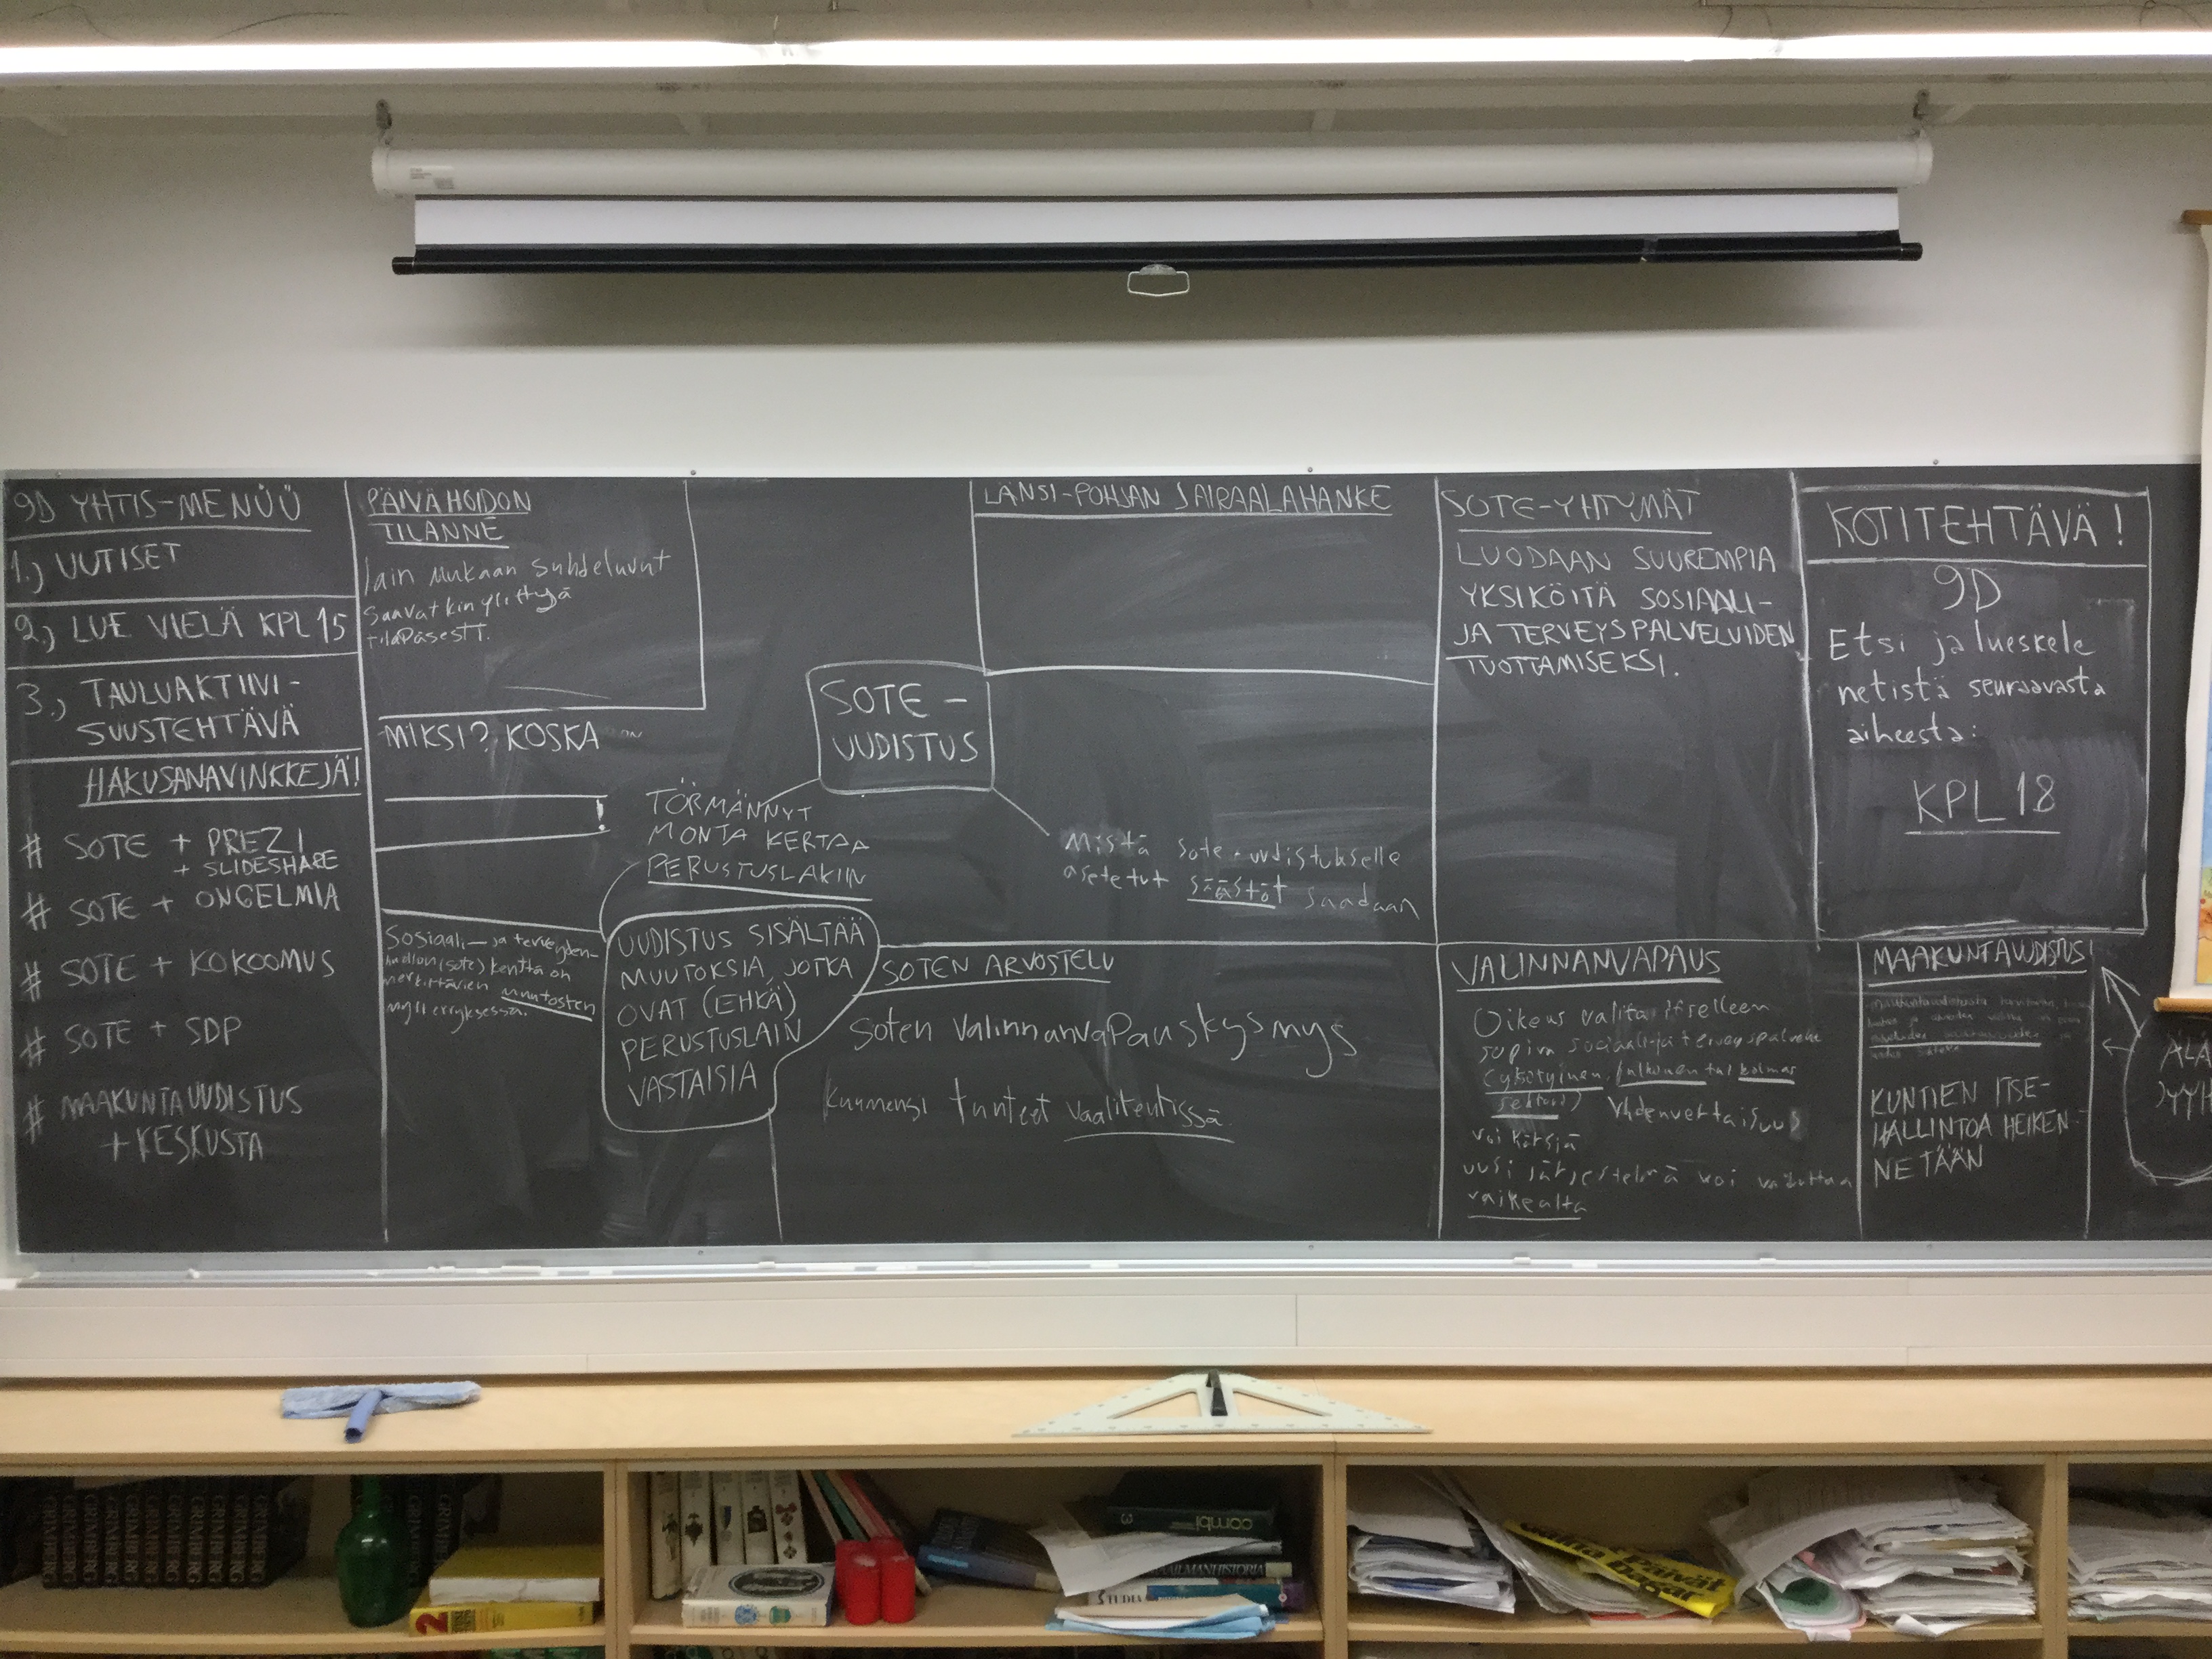 9D YHTIS-MENÜÜ
1.) UUTISET
2.) LUE VIELÄ KPL 15
3.) TAULUAKTIIVI-
SUUSTEHTÄVÄ
HAKUSANAVINKKEJÄ!
# SOTE + PREZI
+ SLIDESHARE
# SOTE + ONGELMIA
# SOTE + KOKOOMUS
# SOTE + SDP
# MAAKUNTAUUDISTUS
+ KESKUSTA
PÄIVÄHOIDON
TILANNE
lain mukaan suhdeluvut
saavatkin ylittyä
tilapäsesti.
MIKSI? KOSKA
on
!
Sosiaali- ja terveyden-
huollon (sote) kenttä on
merkittävien muutosten
myllerryksessä.
SOTE-
UUDISTUS
TÖRMÄNNYT
MONTA KERTAA
PERUSTUSLAKIIN
UUDISTUS SISÄLTÄÄ
MUUTOKSIA, JOTKA
OVAT (EHKÄ)
PERUSTUSLAIN
VASTAISIA
Mistä sote-uudistukselle
asetetut säästöt saadaan
LÄNSI-POHJAN SAIRAALAHANKE
SOTEN ARVOSTELU
Soten valinnanvapauskysmys
kuumensi tunteet vaalitentissä.
SOTE-YHTYMÄT
LUODAAN SUUREMPIA
YKSIKÖITÄ SOSIAALI-
JA TERVEYSPALVELUIDEN
TUOTTAMISEKSI.
VALINNANVAPAUS
Oikeus valita itselleen
sopiva sosiaali-ja terveyspalvelu
(yksityinen, julkinen tai kolmas
sektori) Yhdenvertaisuus
voi kärsiä
uusi järjestelmä voi vaikuttaa
vaikealta
KOTITEHTÄVÄ!
9D
Etsi ja lueskele
netistä seuraavasta
aiheesta:
KPL 18
MAAKUNTAUUDISTUS!
KUNTIEN ITSE-
HALLINTOA HEIKEN-
NETÄÄN
ÄLÄ
PYYH
GRIMBERG
GRIMBERG
GRIMBERG
GRIMBERG
GRIMBERG
GRIMBERG
GRIMBERG
GRIMBERG
2
combi 3
STUDIA